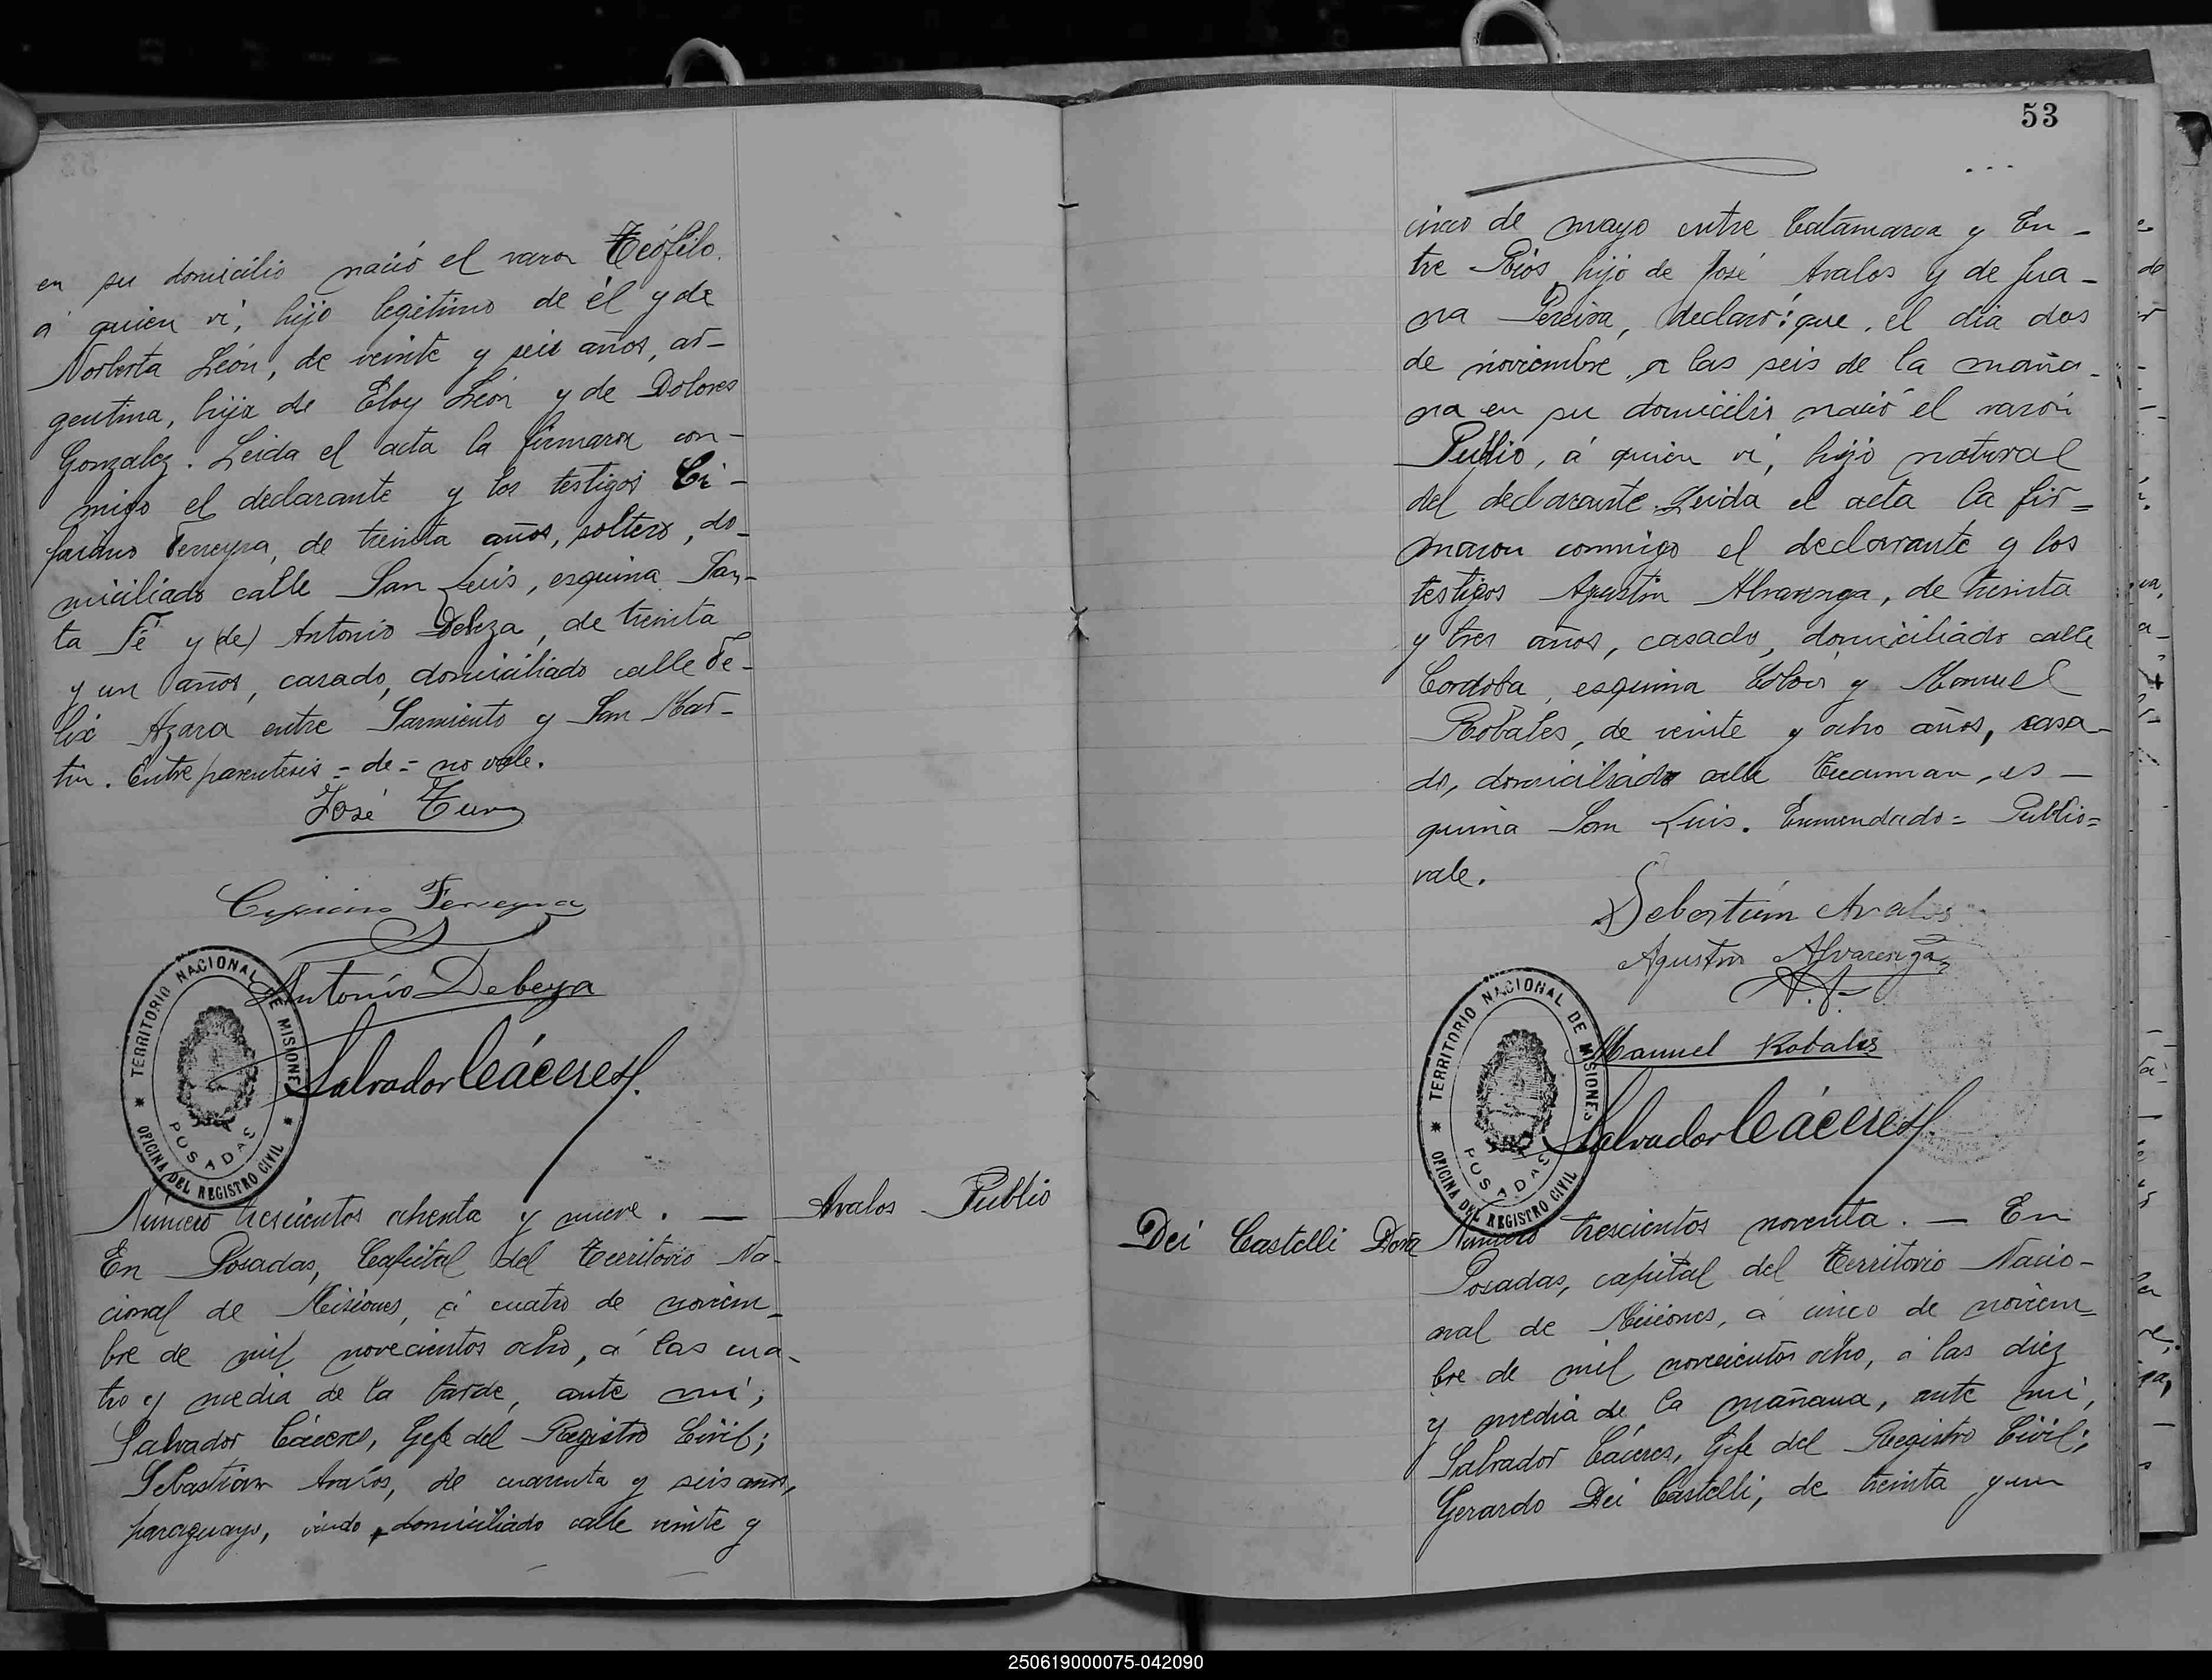 en su domicilio nació el varon Teófilo.
á quien ví, hijo legitimo de él y de
Norberta León, de veinte y seis años, ar-
gentina, hija de Eloy León y de Dolores
Gonzalez. Leida el acta la firmaron con-
migo el declarante y los testigos Ci-
Ferreyra, de treinta años, soltero, do-
miciliado calle San Luis, esquina San-
ta Fé y (de) Antonio Debeza, de treinta
y un años, casado, domiciliado calle Fe-
lix Azara entre Sarmiento y San Mar-
tin. Entre parentesis = de = no vale.
José
Cipriano Ferreyra
Antonio Debeza
Salvador Cáceres
TERRITORIO NACIONAL DE MISIONES
POSADAS
OFICINA DEL REGISTRO CIVIL
Número trescientos ochenta y nueve. —
Avalos Publio
En Posadas, Capital del Territorio Na-
cional de Misiones, á cuatro de noviem-
bre de mil novecientos ocho, á las cua-
tro y media de la tarde, ante mí;
Salvador Cáceres, Gefe del Registro Civil;
Sebastian Avalos, de cuarenta y seis años,
paraguayo, viudo, domiciliado calle veinte y
53
cinco de mayo entre Catamarca y En-
tre Rios, hijo de José Avalos y de Jua-
na Pereira, declaró: que el dia dos
de noviembre, a las seis de la maña-
na en su domicilio nació el varón
Publio, á quien ví, hijo natural
del declarante. Leida el acta la fir=
maron conmigo el declarante y los
testigos Agustin Alvarenga, de treinta
y tres años, casado, domiciliado calle
Cordoba, esquina Colón y Manuel
Robales, de veinte y ocho años, casa-
do, domiciliado calle Tucuman, es-
quina San Luis. Enmendado = Publio =
vale.
Sebastián Avalos
Agustin Alvarenga
Manuel Robales
Salvador Cáceres
TERRITORIO NACIONAL DE MISIONES
POSADAS
OFICINA DEL REGISTRO CIVIL
Dei Castelli Dora
Número trescientos noventa. — En
Posadas, capital del Territorio Nacio-
nal de Misiones, á cinco de noviem-
bre de mil novecientos ocho, á las diez
y media de la mañana, ante mí,
Salvador Cáceres, Gefe del Registro Civil;
Gerardo Dei Castelli, de treinta y un
250619000075-042090